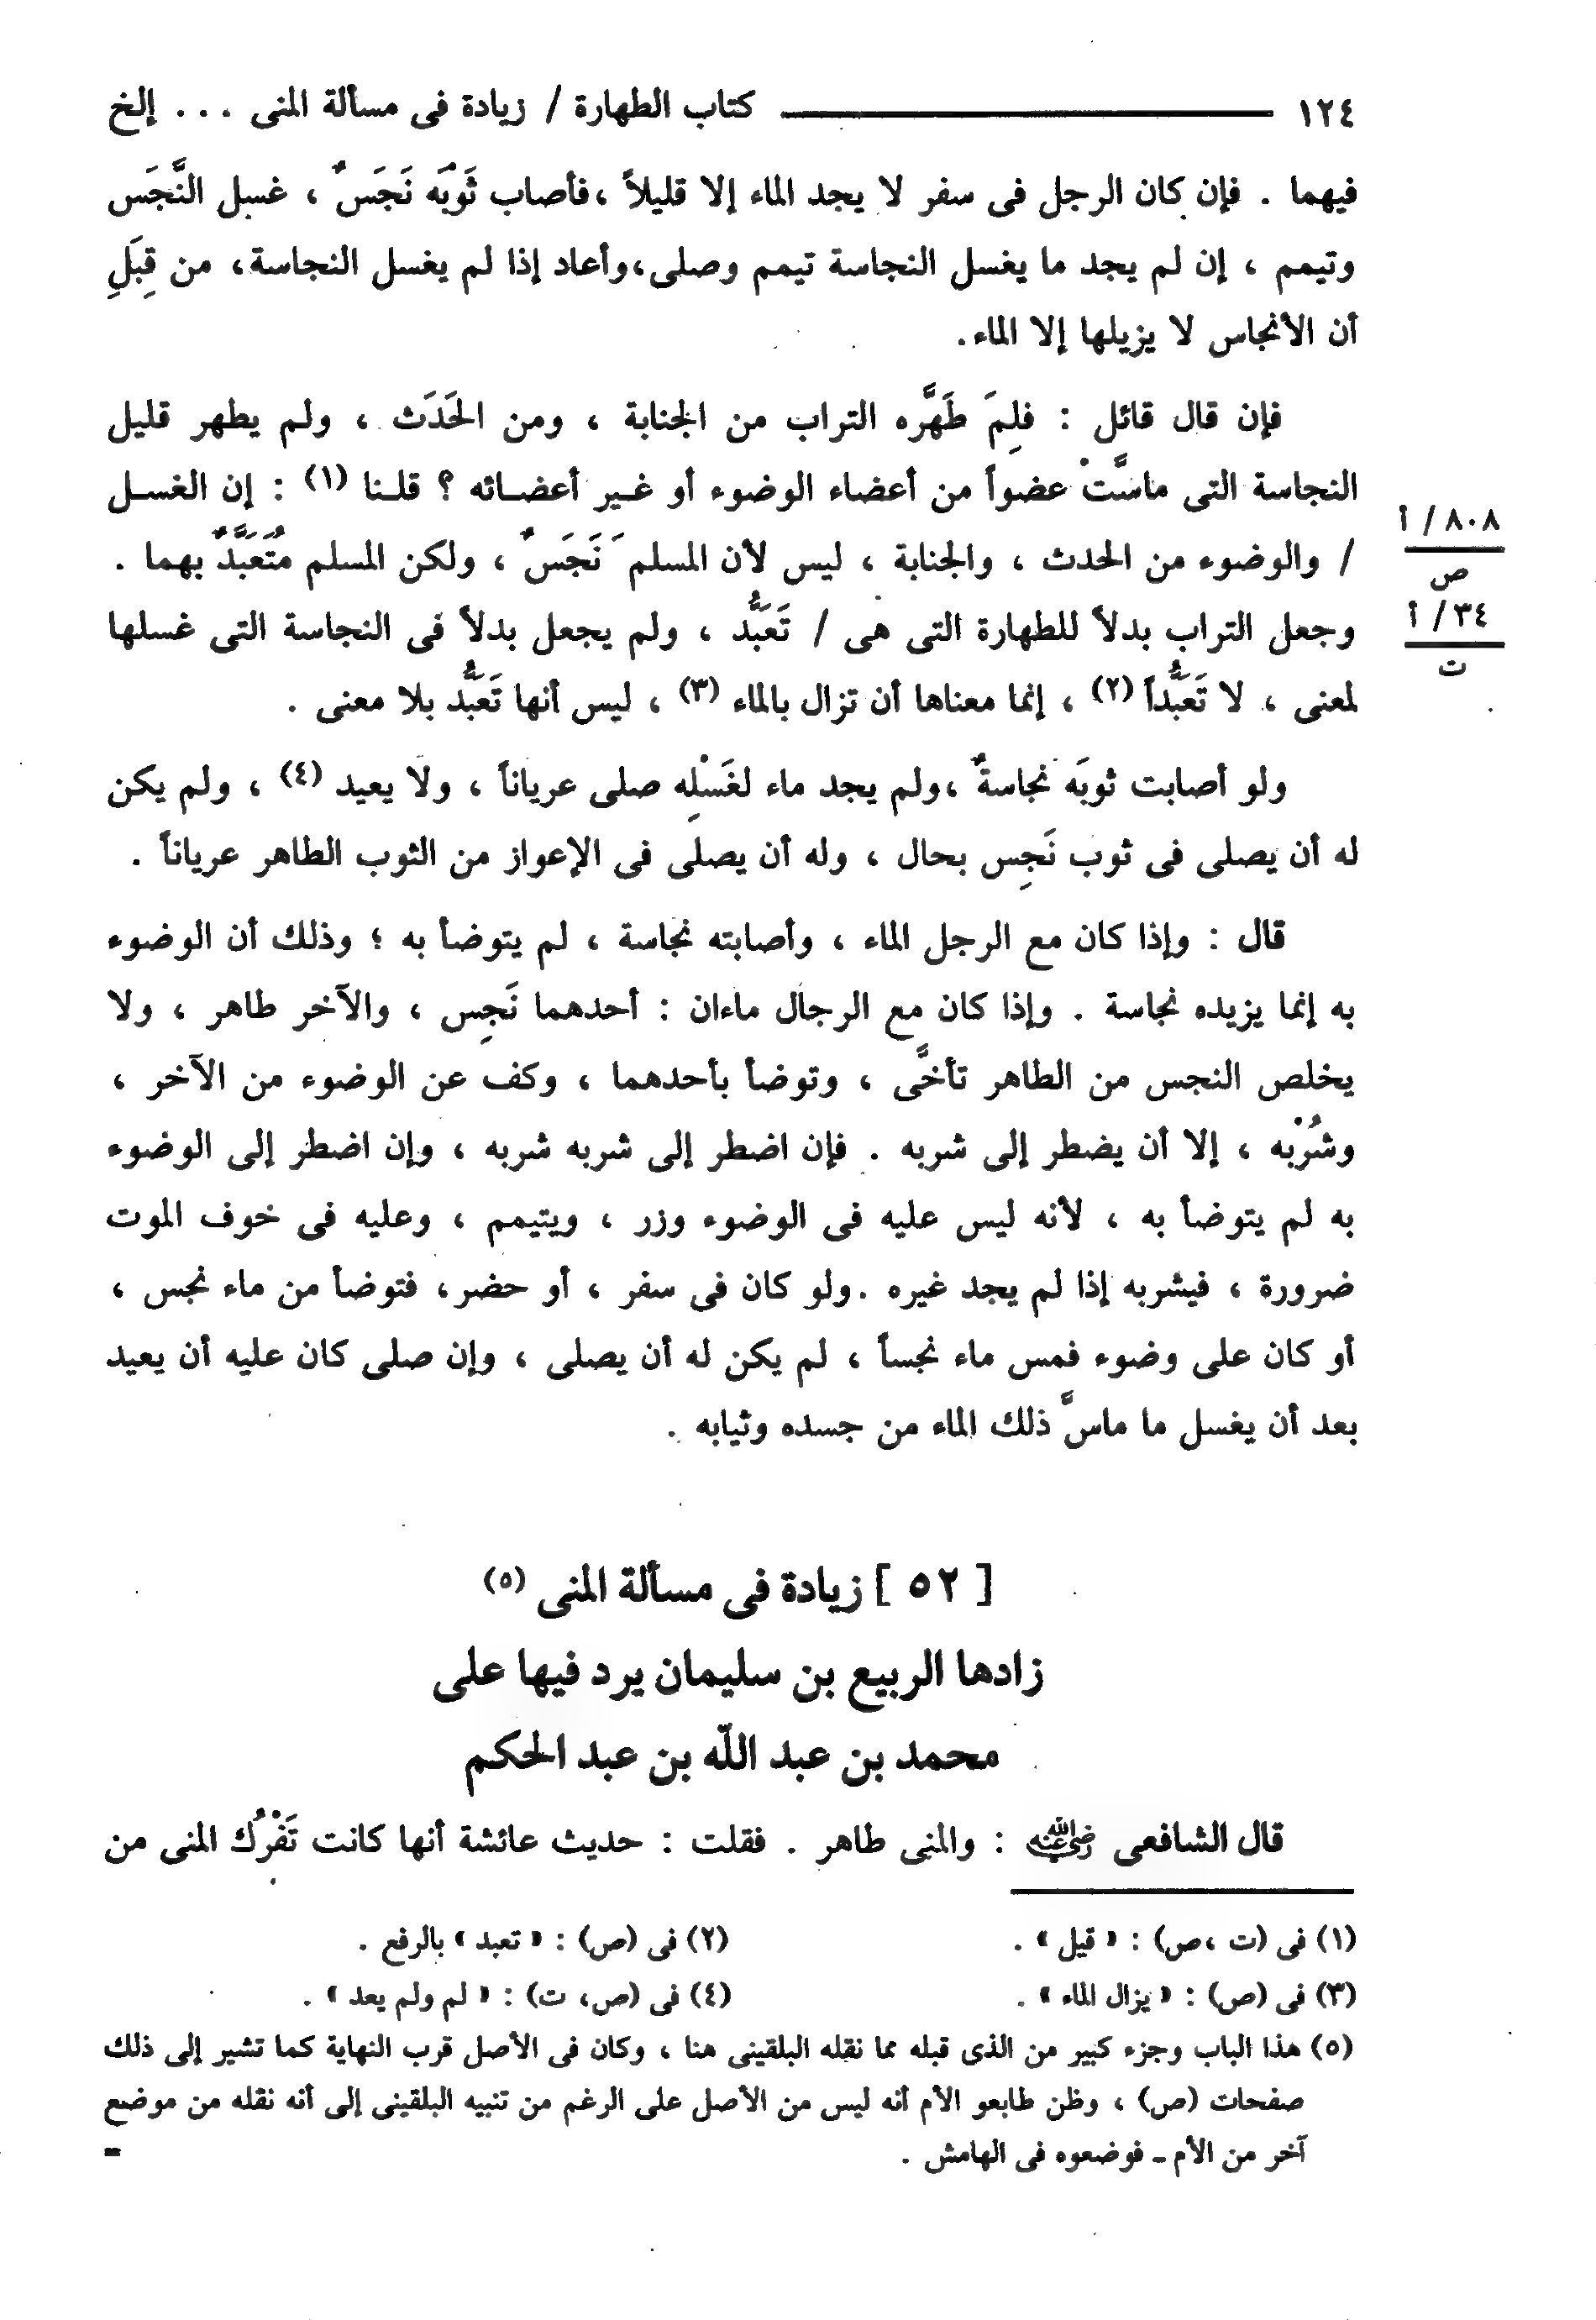 ١٢٤ كتاب الطهارة / زيادة فى مسألة المنى . . . إلخ
فيهما . فإن كان الرجل فى سفر لا يجد الماء إلا قليلاً ،فأصاب ثَوبَه نَجَسٌ ، غسل النَّجَس
وتيمم ، إن لم يجد ما يغسل النجاسة تيمم وصلى،وأعاد إذا لم يغسل النجاسة، من قِبَلِ
أن الأنجاس لا يزيلها إلا الماء.
فإن قال قائل : فلِمَ طَهَّره التراب من الجنابة ، ومن الحَدَث ، ولم يطهر قليل
النجاسة التى ماسَّتْ عضواً من أعضاء الوضوء أو غـير أعضـائه ؟ قلـنا (١) : إن الغسـل
/ والوضوء من الحدث ، والجنابة ، ليس لأن المسلم نَجَسٌ ، ولكن المسلم مُتَعَبَّدٌ بهما .
وجعل التراب بدلاً للطهارة التى هى / تَعَبُّد ، ولم يجعل بدلاً فى النجاسة التى غسلها
لمعنى ، لا تَعَبُّداً (٢) ، إنما معناها أن تزال بالماء (٣) ، ليس أنها تَعَبُّد بلا معنى .
٨٠٨ / أ
ص
٣٤ / أ
ت
ولو أصابت ثوبَه نجاسةٌ ،ولم يجد ماء لغَسْلِه صلى عرياناً ، ولا يعيد (٤) ، ولم يكن
له أن يصلى فى ثوب نَجِس بحال ، وله أن يصلى فى الإعواز من الثوب الطاهر عرياناً .
قال : وإذا كان مع الرجل الماء ، وأصابته نجاسة ، لم يتوضأ به ؛ وذلك أن الوضوء
به إنما يزيده نجاسة . وإذا كان مع الرجال ماءان : أحدهما نَجِس ، والآخر طاهر ، ولا
يخلص النجس من الطاهر تأخَّى ، وتوضأ بأحدهما ، وكف عن الوضوء من الآخر ،
وشُرْبه ، إلا أن يضطر إلى شربه . فإن اضطر إلى شربه شربه ، وإن اضطر إلى الوضوء
به لم يتوضأ به ، لأنه ليس عليه فى الوضوء وزر ، ويتيمم ، وعليه فى خوف الموت
ضرورة ، فيشربه إذا لم يجد غيره .ولو كان فى سفر ، أو حضر، فتوضأ من ماء نجس ،
أو كان على وضوء فمس ماء نجساً ، لم يكن له أن يصلى ، وإن صلى كان عليه أن يعيد
بعد أن يغسل ما ماسَّ ذلك الماء من جسده وثيابه .
[ ٥٢ ] زيادة فى مسألة المنى (٥)
زادها الربيع بن سليمان يرد فيها على
محمد بن عبد اللّه بن عبد الحكم
قال الشافعى رضي الله عنه : والمنى طاهر . فقلت : حديث عائشة أنها كانت تَفْرُك المنى من
(١) فى (ت ،ص) : « قيل » . (٢) فى (ص) : « تعبد » بالرفع .
(٣) فى (ص) : « يزال الماء » . (٤) فى (ص، ت) : « لم ولم يعد » .
(٥) هذا الباب وجزء كبير من الذى قبله مما نقله البلقينى هنا ، وكان فى الأصل قرب النهاية كما تشير إلى ذلك
صفحات (ص) ، وظن طابعو الأم أنه ليس من الأصل على الرغم من تنبيه البلقينى إلى أنه نقله من موضع
آخر من الأم ـ فوضعوه فى الهامش . =